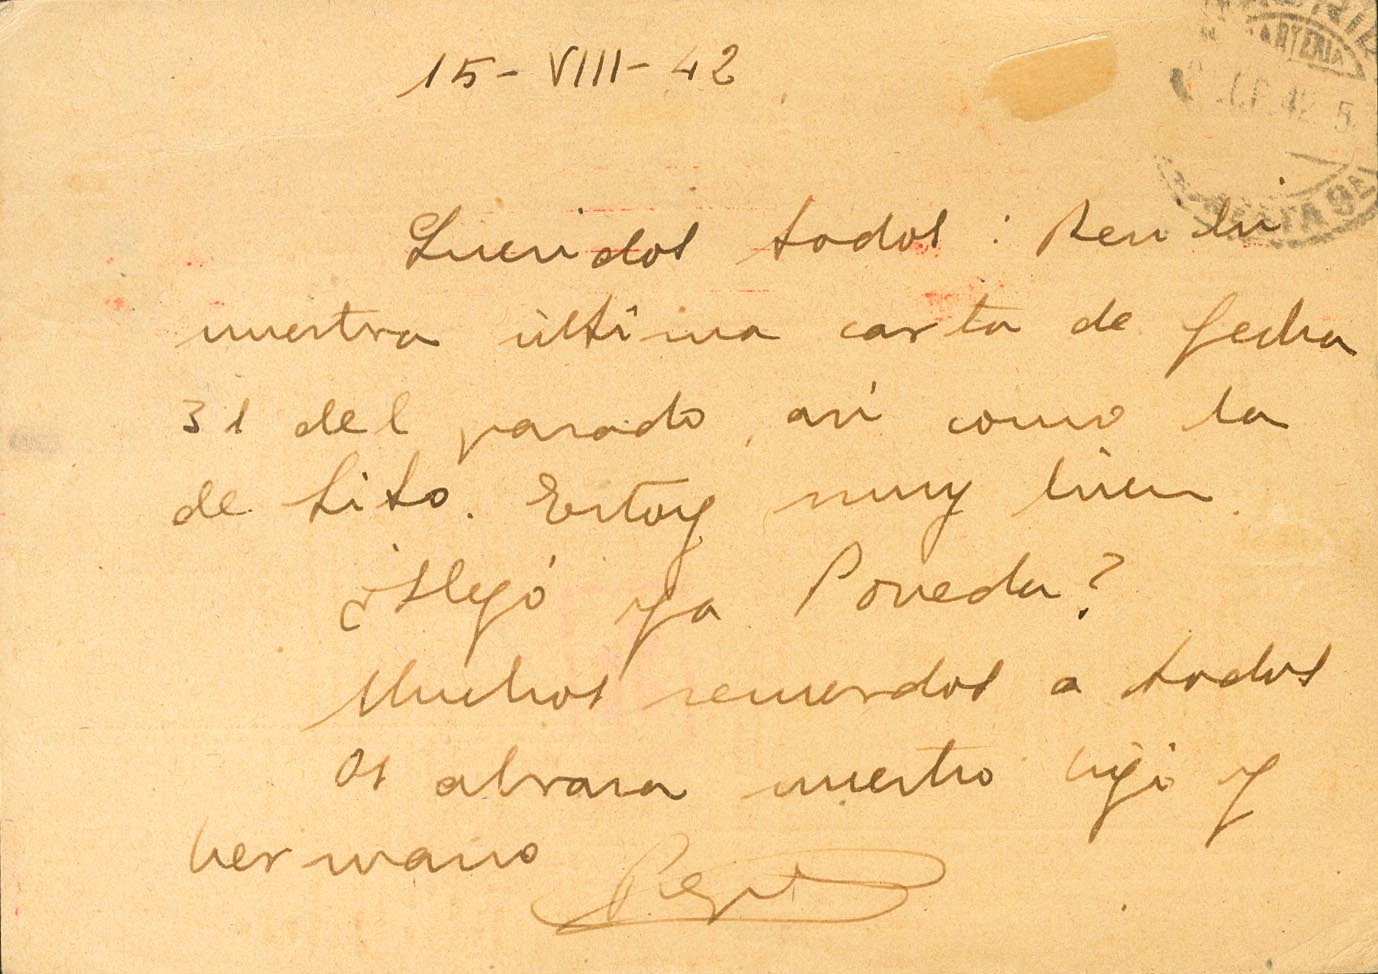 15-VIII-42
CARTERIA
42 5
Queridos todos: Recibí
vuestra última carta de fecha
31 del pasado, así como la
de Lito. Estoy muy bien.
¿Llegó ya Poveda?
Muchos recuerdos a todos
Os abraza vuestro hijo y
hermano
Pepe